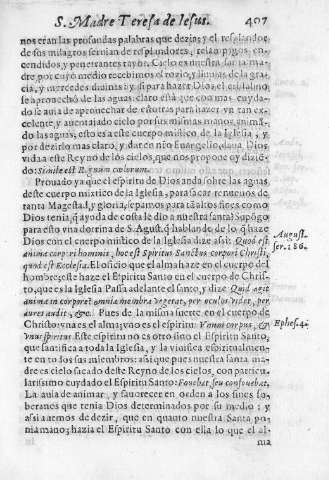 S. Madre Teresa de Iesus. 407
nos eran las profundas palabras que dezia; y el resplandor
de sus milagros seruian de resplandores, relãpagos, en-
cendidos, y penetrantes rayos. Cielo es nuestra santa ma-
dre, por cuyo medio recebimos el rozio, y lluuias de la gra-
cia, y mercedes diuinas: y si para hazer Dios, el cristalino
se aprouechò de las aguas claro està que con mas cuyda-
do se auia de aprouechar de estas para hazer vn tan ex-
celente, y auentajado cielo por sus mismas manos, anima-
do las aguas, esto es a este cuerpo mistico de la Iglesia; y
por dezirlo mas claro, y dar en nro Euangelio, daua Dios
vida a este Reyno de los cielos, que nos propone oy dizie-
do: Simile est Regnum cœlorum.
Prouado ya que el espiritu de Dios anda sobre las aguas
deste cuerpo mistico de la Iglesia, para sacar renueuos de
tanta Magestad, y gloria, sepamos para tã altos fines como
Dios tenia, q ayuda de costa le dio a nuestra santa? Supõgo
para esto vna dotrina de S. August. q hablando de lo q haze
Dios con el cuerpo mistico de la Iglesia dize asi: Quod est
anima corpori hominis, hoc est Spiritus Sanctus corpori Christi,
quod est Ecclesia. El oficio que el alma haze en el cuerpo del
hombre, esse haze el Espiritu Santo en el cuerpo de Chris-
to, que es la Iglesia. Passa adelante el santo, y dize Quid agit
anima in corpore? omnia membra vegetat, per oculos videt, per
aures audit, &c. Pues de la misma suerte en el cuerpo de
Christo: vna es el alma; vno es el espiritu: Vnum corpus, &
vnus spiritus. Este espiritu no es otro sino el Espiritu Santo,
que santifica a toda la Iglesia, y la viuifica espiritualmen-
te en todos sus miembros: asi que pues nuestra santa ma-
dre es cielo sacado deste Reyno de los cielos, con particu-
larissimo cuydado el Espiritu Santo:
La auia de animar, y fauorecer en orden a los fines so-
beranos que tenia Dios determinados por su medio: y
assi auemos de dezir, que en quanto nuestra Santa po-
nia mano; hazia el Espiritu Santo con ella lo que el al-
ma
August.
ser. 186.
Ephes. 4.